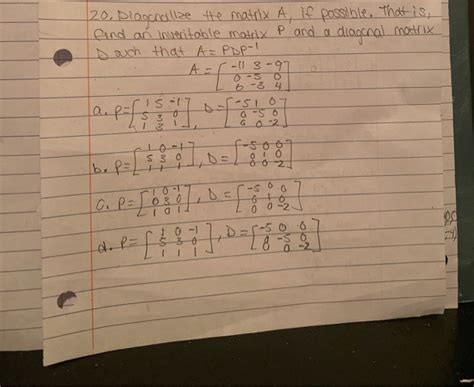 20. Diagonalize the matrix A, if possible. That is,
find an invertible matrix P and a diagonal matrix
D such that A = PDP⁻¹
A = [-11 3 -9
0 -5 0
6 -3 4]
a. P = [1 5 -1
5 3 0
1 3 1], D = [-5 1 0
0 -5 0
0 0 -2]
b. P = [1 0 -1
5 3 0
1 1 1], D = [-5 0 0
0 1 0
0 0 -2]
c. P = [1 0 -1
0 3 0
1 0 1], D = [-5 0 0
0 1 0
0 0 -2]
d. P = [1 0 -1
5 3 0
1 1 1], D = [-5 0 0
0 -5 0
0 0 -2]